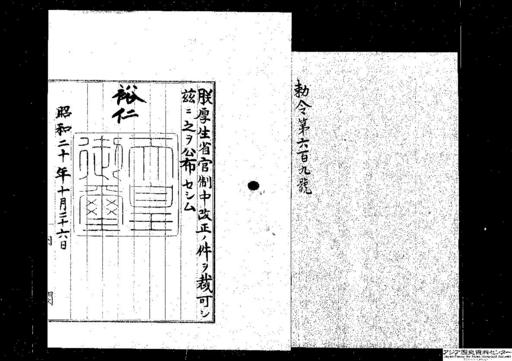 勅令第六百九號
朕厚生省官制中改正ノ件ヲ裁可シ
玆ニ之ヲ公布セシム
裕仁
天皇御璽
昭和二十年十月二十六日
内閣
アジア歴史資料センター